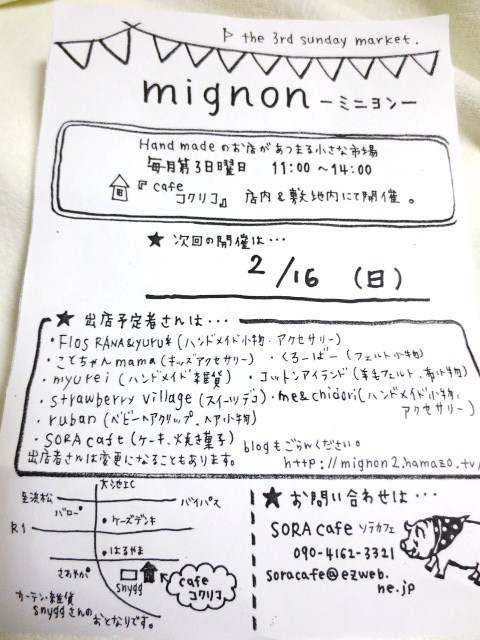 the 3rd sunday market.
mignon ーミニヨンー
Hand madeのお店があつまる小さな市場
毎月第3日曜日 11:00〜14:00
『cafe コクリコ』 店内&敷地内にて開催。
★ 次回の開催は…
2/16 (日)
★ 出店予定者さんは…
・Flos RANA&YURU*(ハンドメイド小物・アクセサリー)
・ことちゃんmama(キッズアクセサリー) ・くろーばー(フェルト小物)
・myurei(ハンドメイド雑貨) ・コットンアイランド(羊毛フェルト、布小物)
・strawberry village(スイーツデコ) ・me&chidori(ハンドメイド小物、アクセサリー)
・ruban(ベビーヘアクリップ、ヘア小物)
・SORA cafe(ケーキ、焼き菓子)
blogもごらんください。
出店者さんは変更になることもあります。
http://mignon2.hamazo.tv/
大池IC
至浜松
バイパス
バロー
R1
ケーズデンキ
はるやま
さわやか
snygg
cafe コクリコ
カーテン・雑貨
snyggさんの
おとなりです。
★ お問い合わせは…
SORA cafe ソラカフェ
090-4162-3321
soracafe@ezweb.
ne.jp